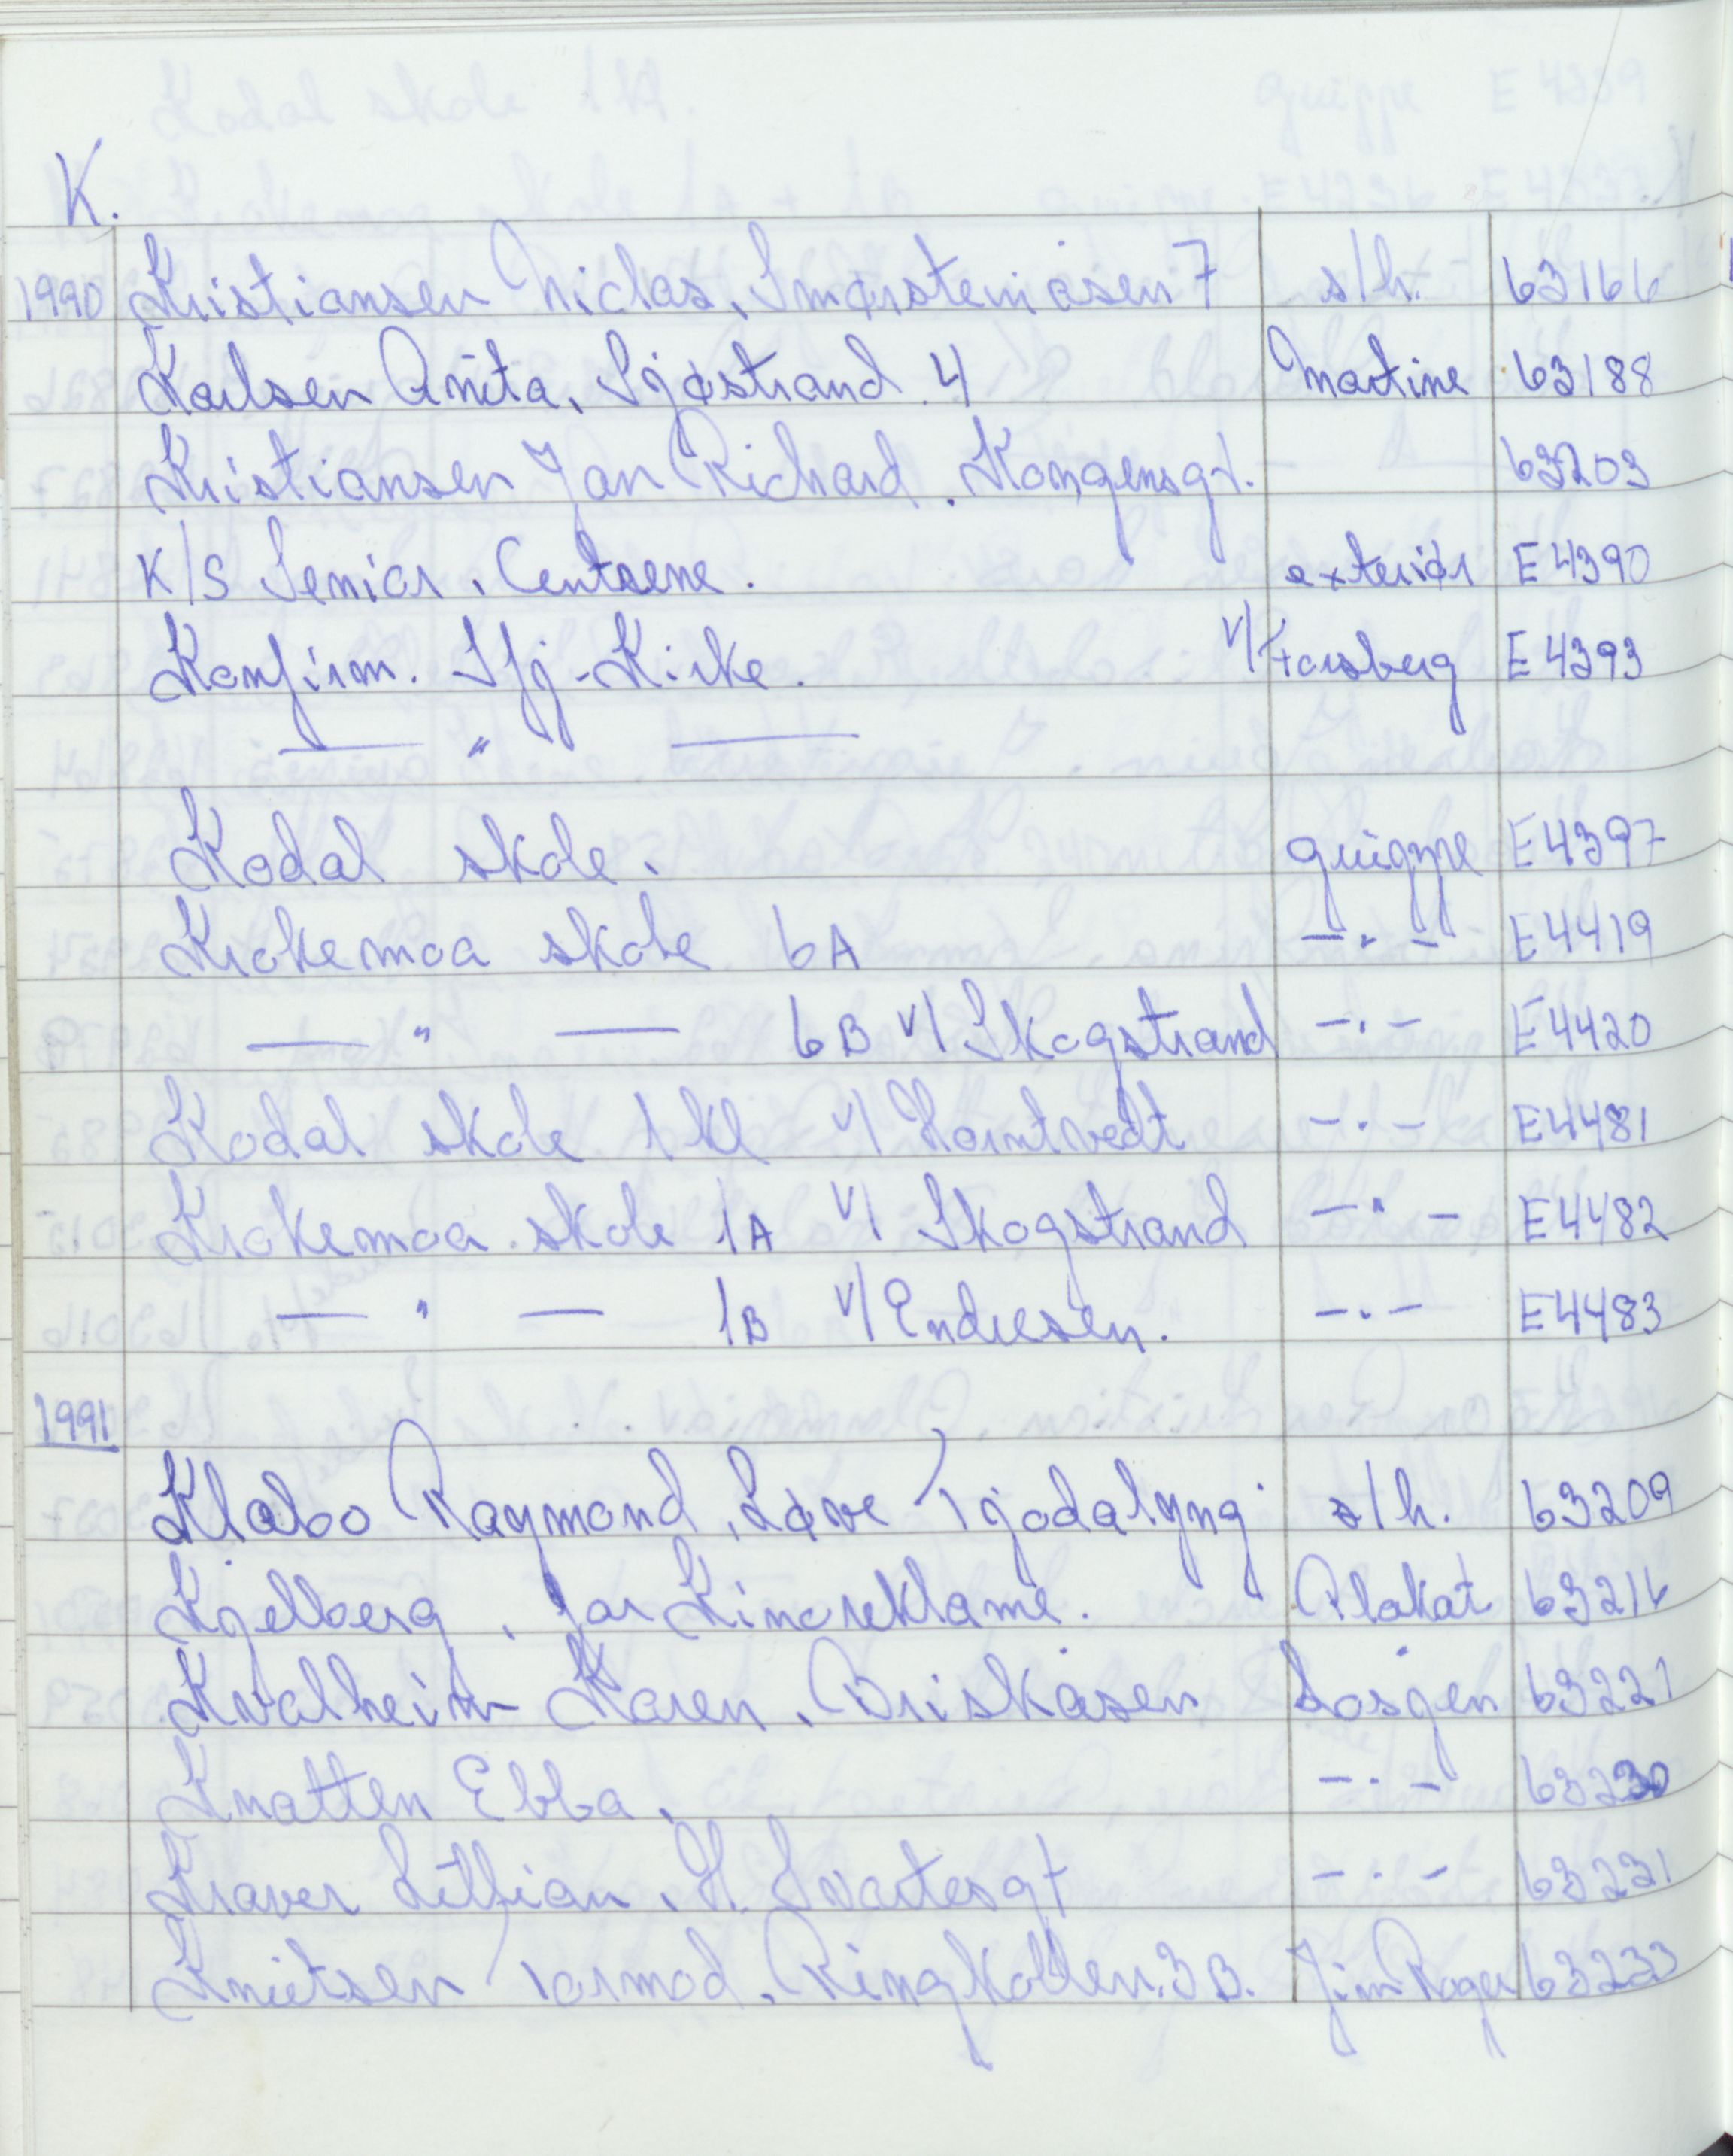 K.
1990 Kristiansen Niclas, Smørsteinåsen 7 s/h. 63166
Karlsen Anita, Sjøstrand 4 Martine 63188
Kristiansen Jan Richard. Kongensgt. 63203
K/S Senior, Centrene. exteriør E4390
Konfirm. Sfj-Kirke. v/Forsberg E4393
— " —
Kodal skole. gruppe E4397
Krokemoa skole 6A — " — E4419
— " — 6B v/ Skogstrand — " — E4420
Kodal skole 1 kl v/ Horntvedt — " — E4481
Krokemoa skole 1A v/ Skogstrand — " — E4482
— " — 1B v/ Endresen. — " — E4483
1991
Klabo Raymond, Løve Tjodalyng s/h. 63209
Kjelberg, for Kinoreklame. Plakat 63216
Kvalheim Karen, Briskåsen Losjen 63221
Knatten Ebba, — " — 63230
Kraver Lillian, H. Svartesgt — " — 63231
Knutsen Tormod, Ringkollen 3B. Jim Roger 63233